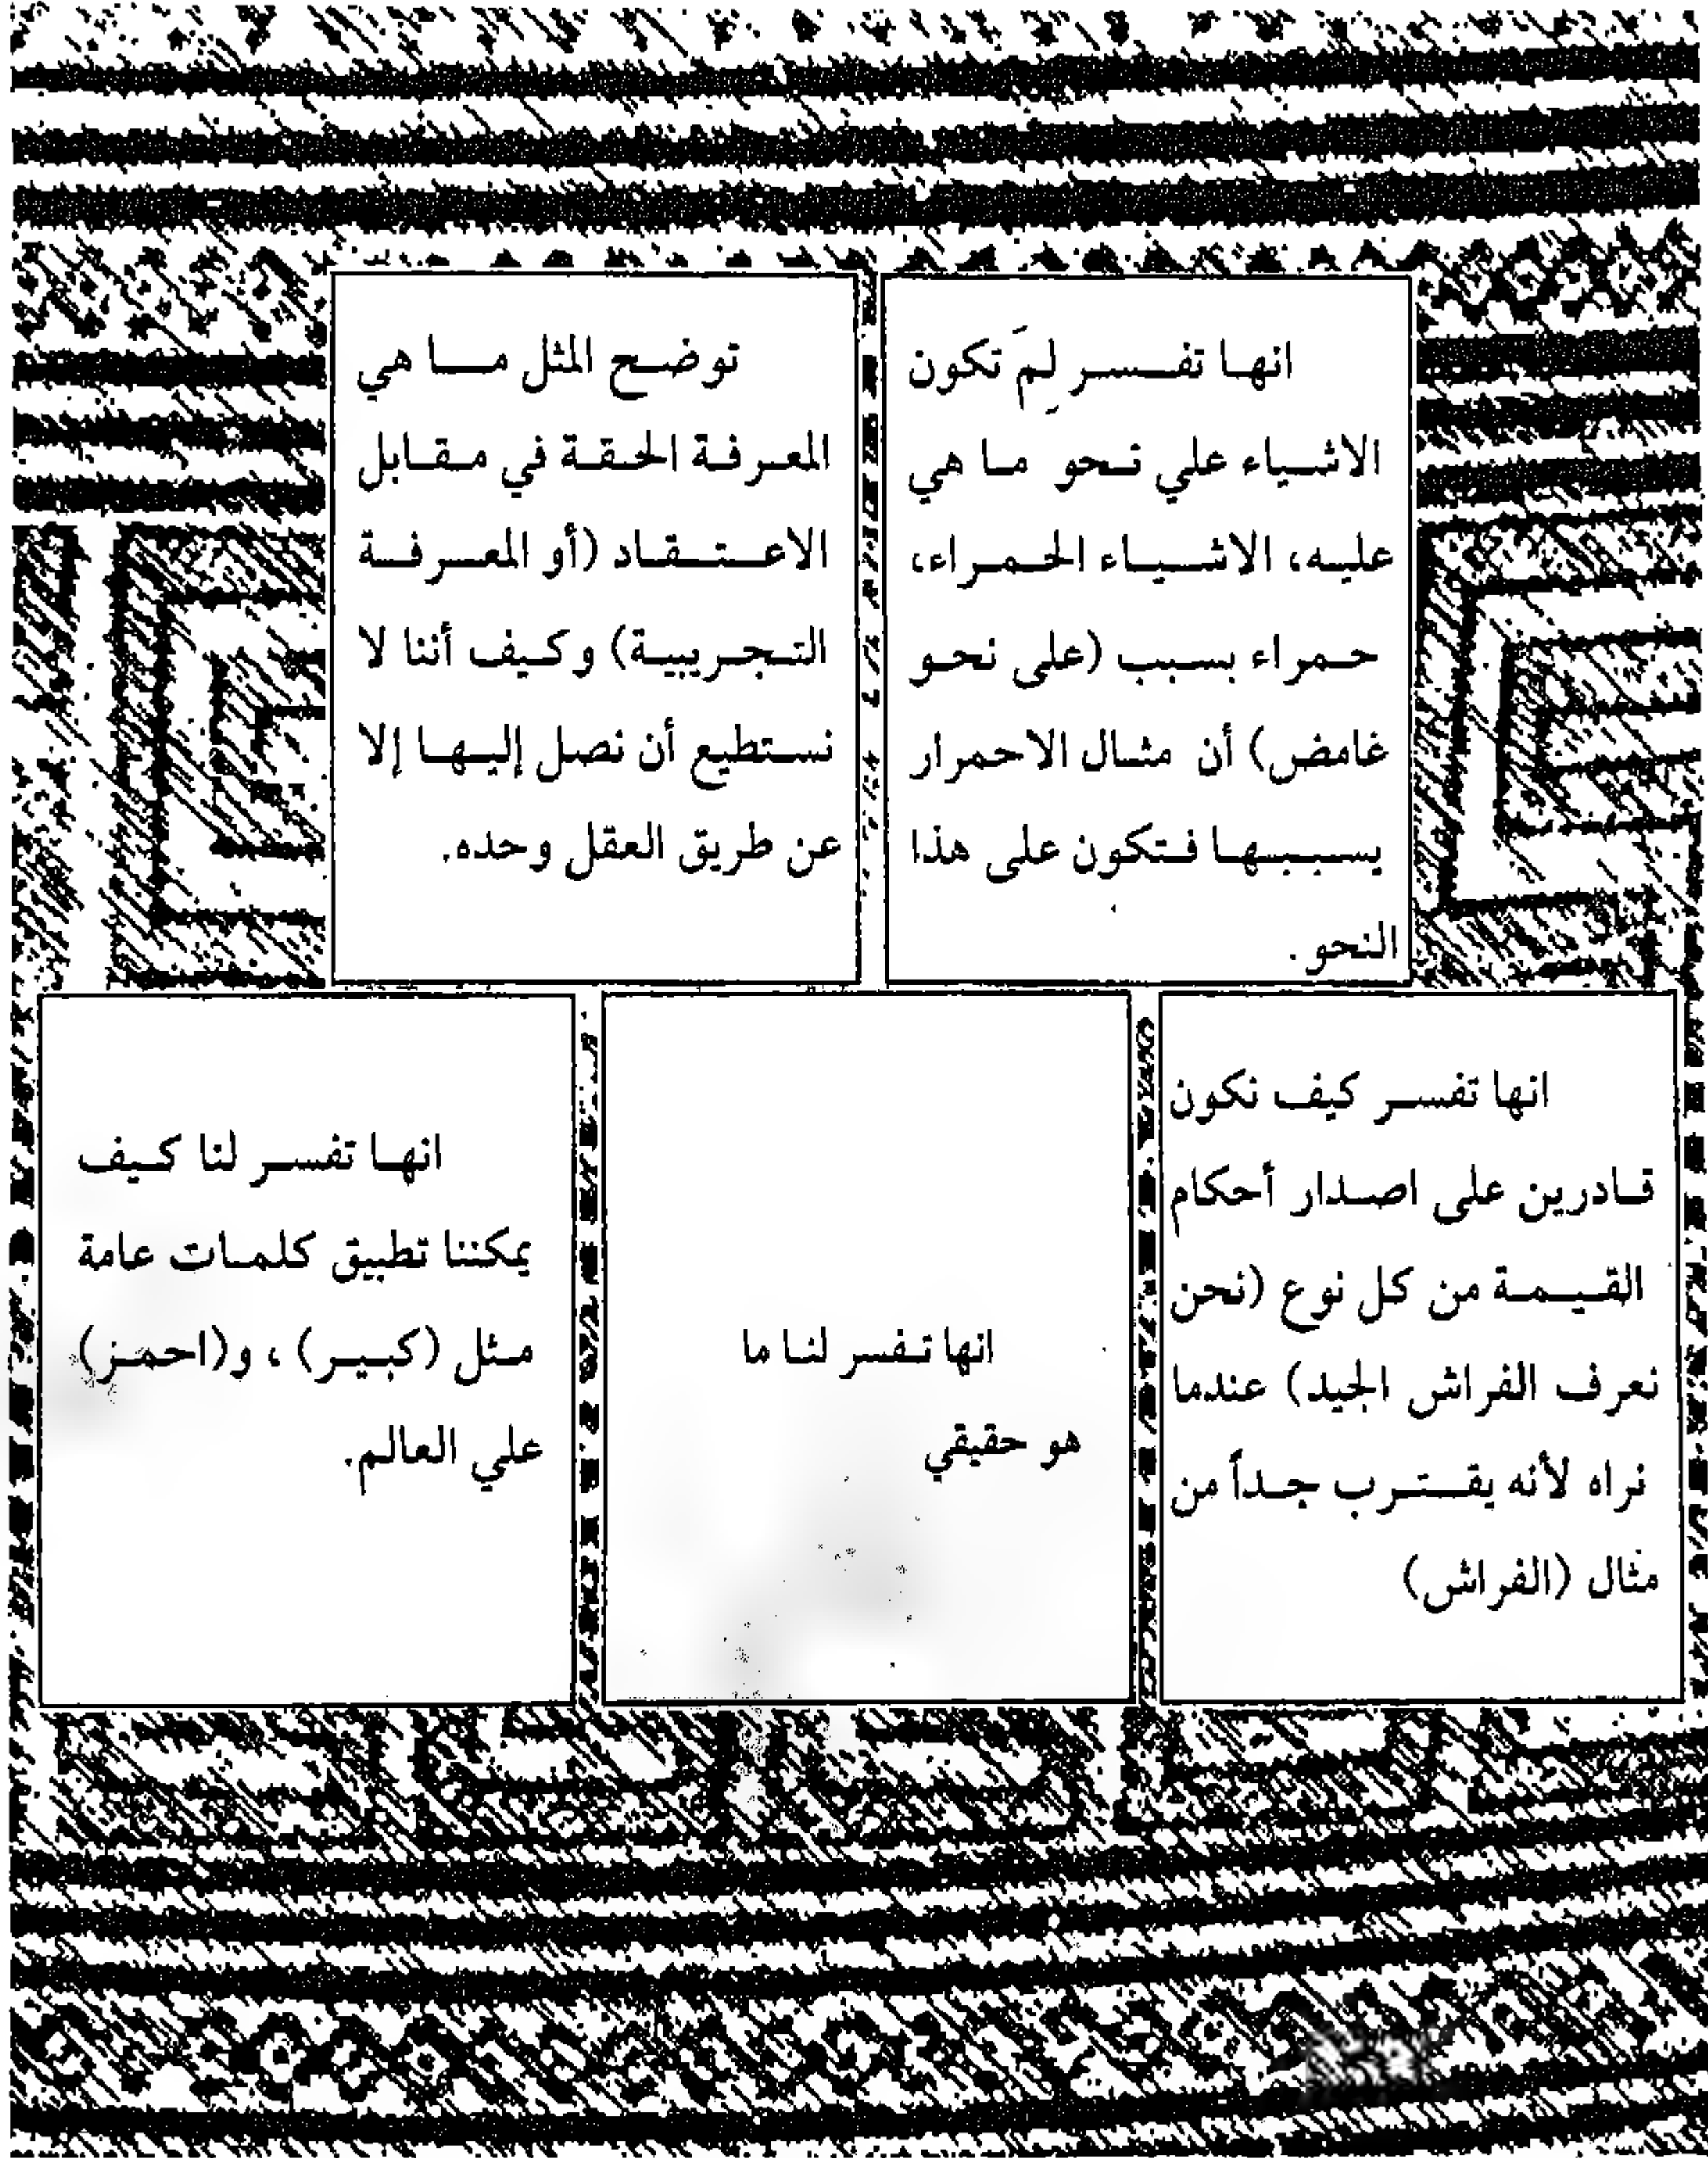 انها تفسر لِمَ تكون
الاشياء علي نحو ما هي
عليه، الاشياء الحمراء،
حمراء بسبب (على نحو
غامض) أن مثال الاحمرار
يسببها فتكون على هذا
النحو.
توضح المثل ما هي
المعرفة الحقة في مقابل
الاعتقاد (أو المعرفة
التجريبية) وكيف أننا لا
نستطيع أن نصل إليها إلا
عن طريق العقل وحده.
انها تفسر كيف نكون
قادرين على اصدار أحكام
القيمة من كل نوع (نحن
نعرف الفراش الجيد) عندما
نراه لأنه يقترب جداً من
مثال (الفراش)
انها تفسر لنا ما
هو حقيقي
انها تفسر لنا كيف
يمكننا تطبيق كلمات عامة
مثل (كبير) ، و(احمز)
علي العالم.